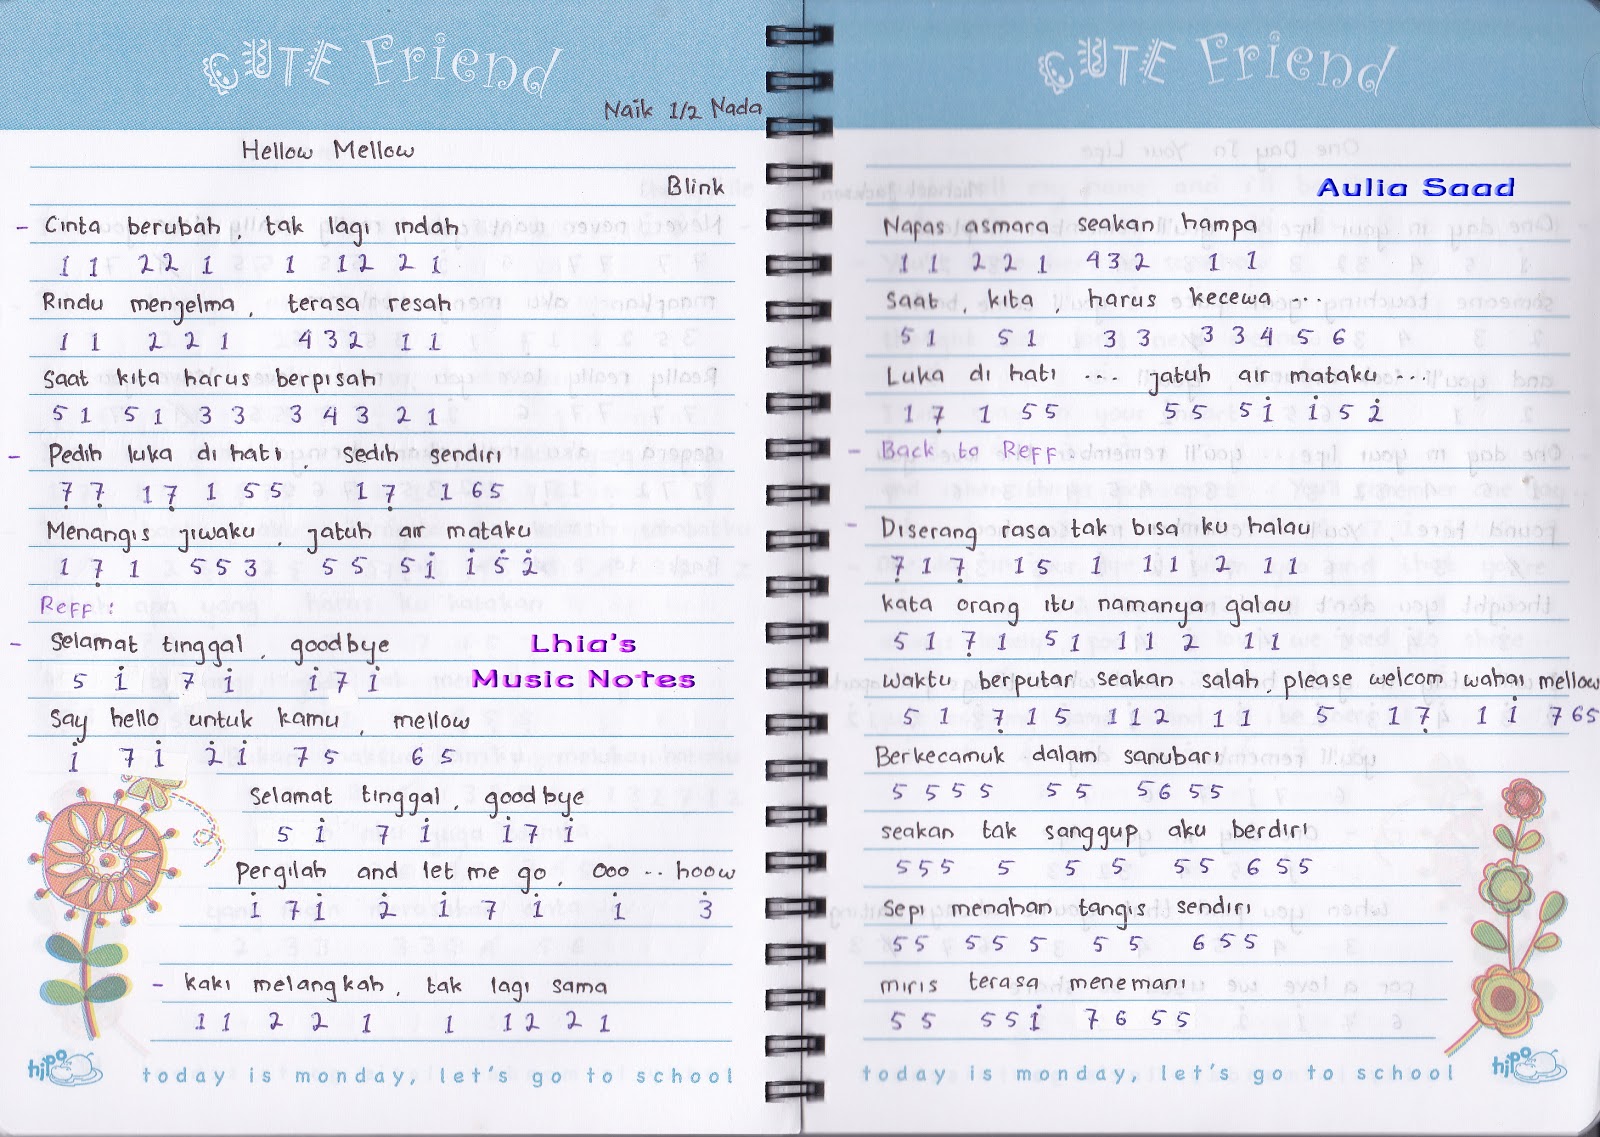 CUTE Friend
Naik 1/2 Nada
Hellow Mellow
Blink
- Cinta berubah, tak lagi indah
1 1 2 2 1 1 1 2 2 1
Rindu menjelma, terasa resah
1 1 2 2 1 4 3 2 1 1
Saat kita harus berpisah
5 1 5 1 3 3 3 4 3 2 1
- Pedih luka di hati, sedih sendiri
7̣ 7̣ 1 7̣ 1 5 5 1 7̣ 1 6 5
Menangis jiwaku, jatuh air mataku
1 7̣ 1 5 5 3 5 5 5 i i 5 2̇
Reff :
- Selamat tinggal, goodbye
5 i 7 i i 7 i
Say hello untuk kamu, mellow
i 7 i 2̇ i 7 5 6 5
Selamat tinggal, goodbye
5 i 7 i i 7 i
Pergilah and let me go, Ooo .. hoow
i 7 i 2̇ i 7 i i 3̇
- kaki melangkah, tak lagi sama
1 1 2 2 1 1 1 2 2 1
Lhia's
Music Notes
hipo
today is monday, let's go to school
CUTE Friend
Aulia Saad
Napas asmara seakan hampa
1 1 2 2 1 4 3 2 1 1
Saat, kita, harus kecewa ...
5 1 5 1 3 3 3 3 4 5 6
Luka di hati ... jatuh air mataku ...
1 7̣ 1 5 5 5 5 5 i i 5 2̇
- Back to Reff
- Diserang rasa tak bisa ku halau
7̣ 1 7̣ 1 5 1 1 1 2 1 1
kata orang itu namanya galau
5 1 7̣ 1 5 1 1 1 2 1 1
waktu berputar seakan salah, please welcom wahai mellow
5 1 7̣ 1 5 1 1 2 1 1 5 1 7̣ 1 i 7 6 5
Berkecamuk dalam sanubari
5 5 5 5 5 5 5 6 5 5
seakan tak sanggup aku berdiri
5 5 5 5 5 5 5 5 6 5 5
Sepi menahan tangis sendiri
5 5 5 5 5 5 5 6 5 5
miris terasa menemani
5 5 5 5 i 7 6 5 5
hipo
today is monday, let's go to school